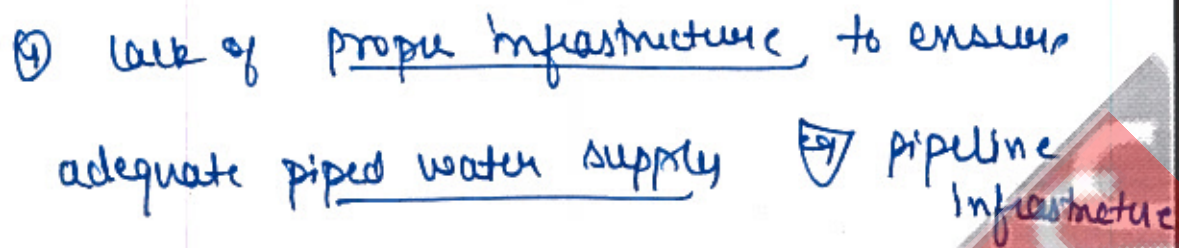 ④ lack of proper infrastructure, to ensure
adequate piped water supply eg pipeline
infrastructure